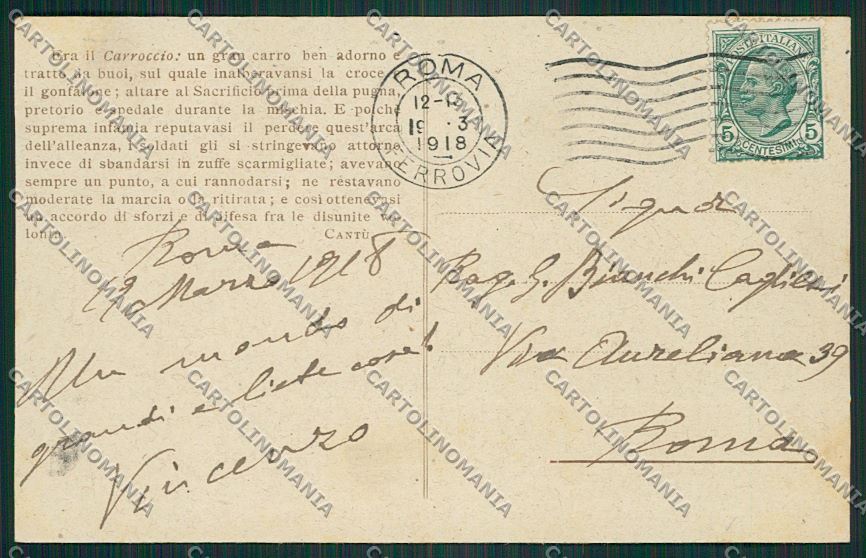 Era il Carroccio: un gran carro ben adorno e
tratto da buoi, sul quale inalberavansi la croce e
il gonfalone; altare al Sacrificio prima della pugna,
pretorio e spedale durante la mischia. E poichè
suprema infamia reputavasi il perdere quest'arca
dell'alleanza, i soldati gli si stringevano attorno
invece di sbandarsi in zuffe scarmigliate; avevano
sempre un punto, a cui rannodarsi; ne restavano
moderate la marcia o la ritirata; e così ottenevasi
un accordo di sforzi e di difesa fra le disunite vo
lontà. CANTÙ
Roma
19 Marzo 1918
Un mondo di
grandi e liete cose!
Vincenzo
ROMA
12-13
19 . 3
1918
FERROVIA
POSTE ITALIANE
5 CENTESIMI 5
Rag. G. Bianchi Caglieri
Via Aureliana 39
Roma
CARTOLINOMANIA